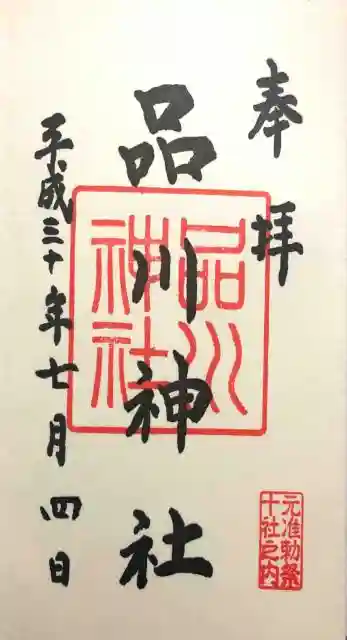 奉拝
品川神社
平成三十年七月四日
品川
神社
元准勅祭
十社之内